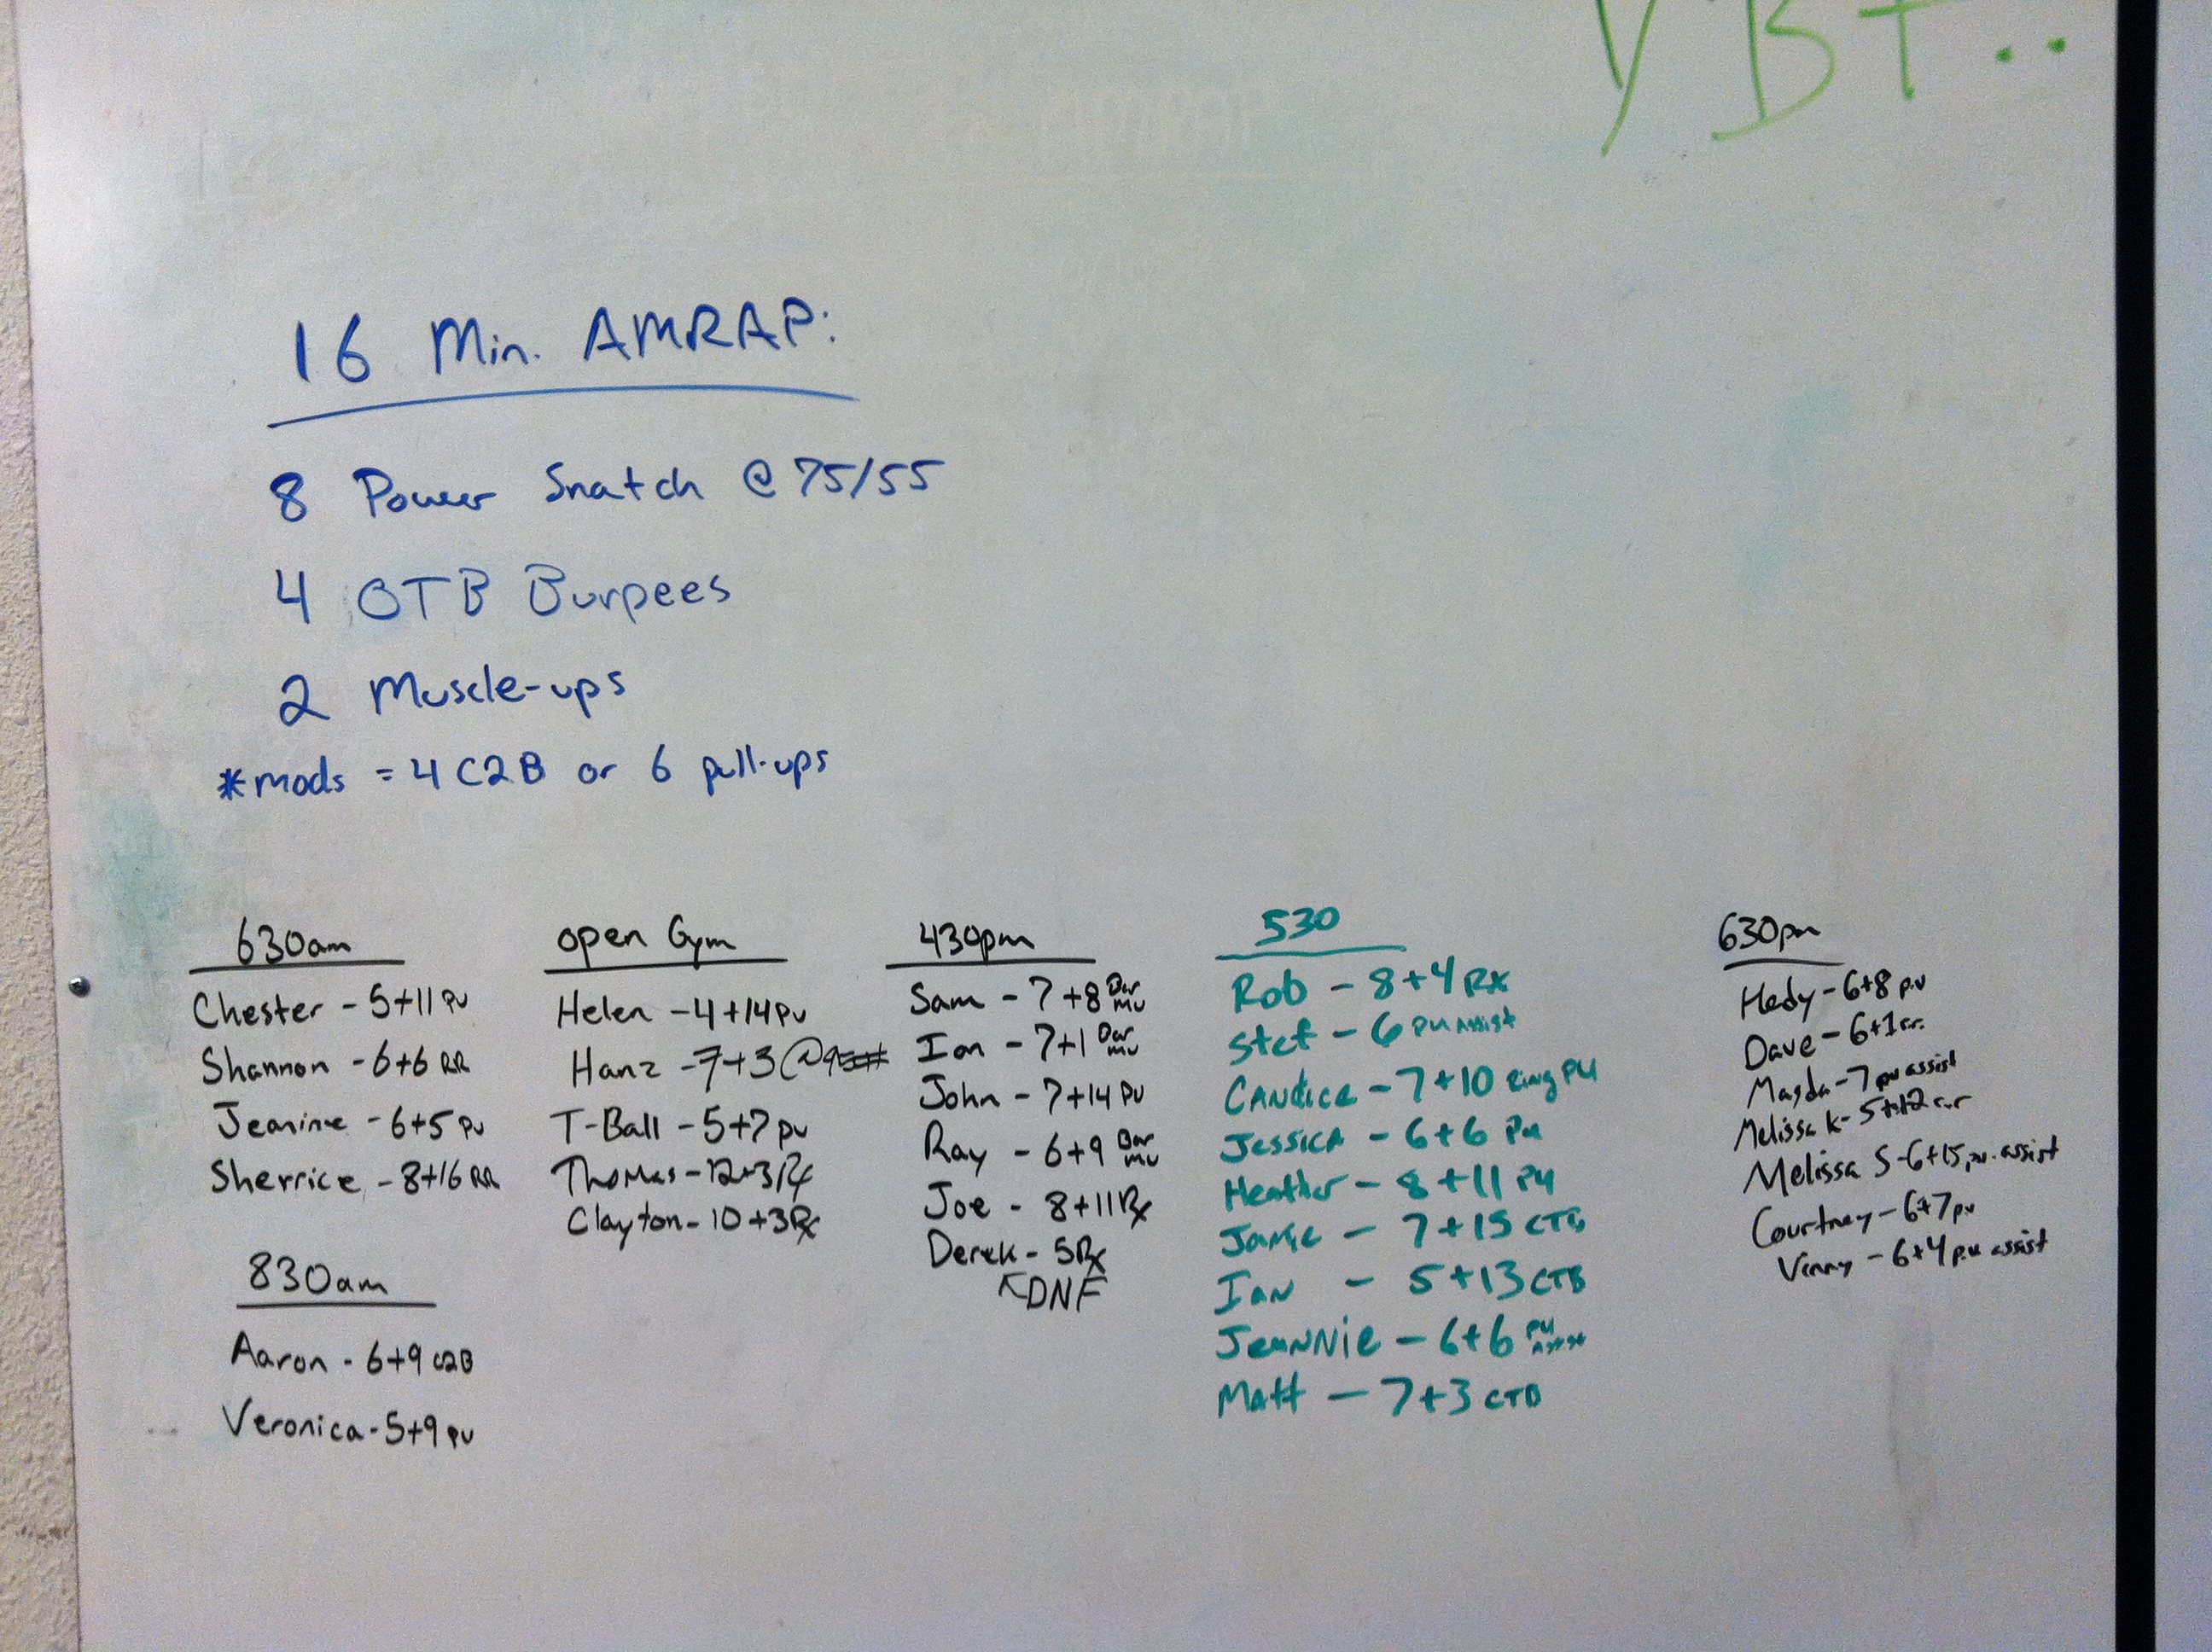 16 Min. AMRAP:
8 Power Snatch @ 75/55
4 OTB Burpees
2 Muscle-ups
*mods = 4 C2B or 6 pull-ups
630am
Chester - 5+11 PU
Shannon - 6+6 RR
Jeanine - 6+5 PU
Sherrice - 8+16 RR
830am
Aaron - 6+9 C2B
Veronica - 5+9 PU
open Gym
Helen - 4+14 PU
Hanz - 7+3 @
T-Ball - 5+7 PU
Thomas - 12+3 Rx
Clayton - 10+3 Rx
430pm
Sam - 7+8 Bar MU
Ian - 7+1 Bar MU
John - 7+14 PU
Ray - 6+9 Bar MU
Joe - 8+11 Rx
Derek - 5 Rx
DNF
530
Rob - 8+4 RX
Stef - 6 PU Assist
CANdice - 7+10 Ring PU
Jessica - 6+6 PU
Heather - 8+11 PU
Jamie - 7+15 CTB
Ian - 5+13 CTB
JeaNNie - 6+6 PU Assist
Matt - 7+3 CTB
630pm
Hedy - 6+8 p.u
Dave - 6+1 r.r.
Magda - 7 pu assist
Melissa K - 5+12 r.r
Melissa S - 6+15 p.u. assist
Courtney - 6+7 pu
Vinny - 6+4 p.u assist